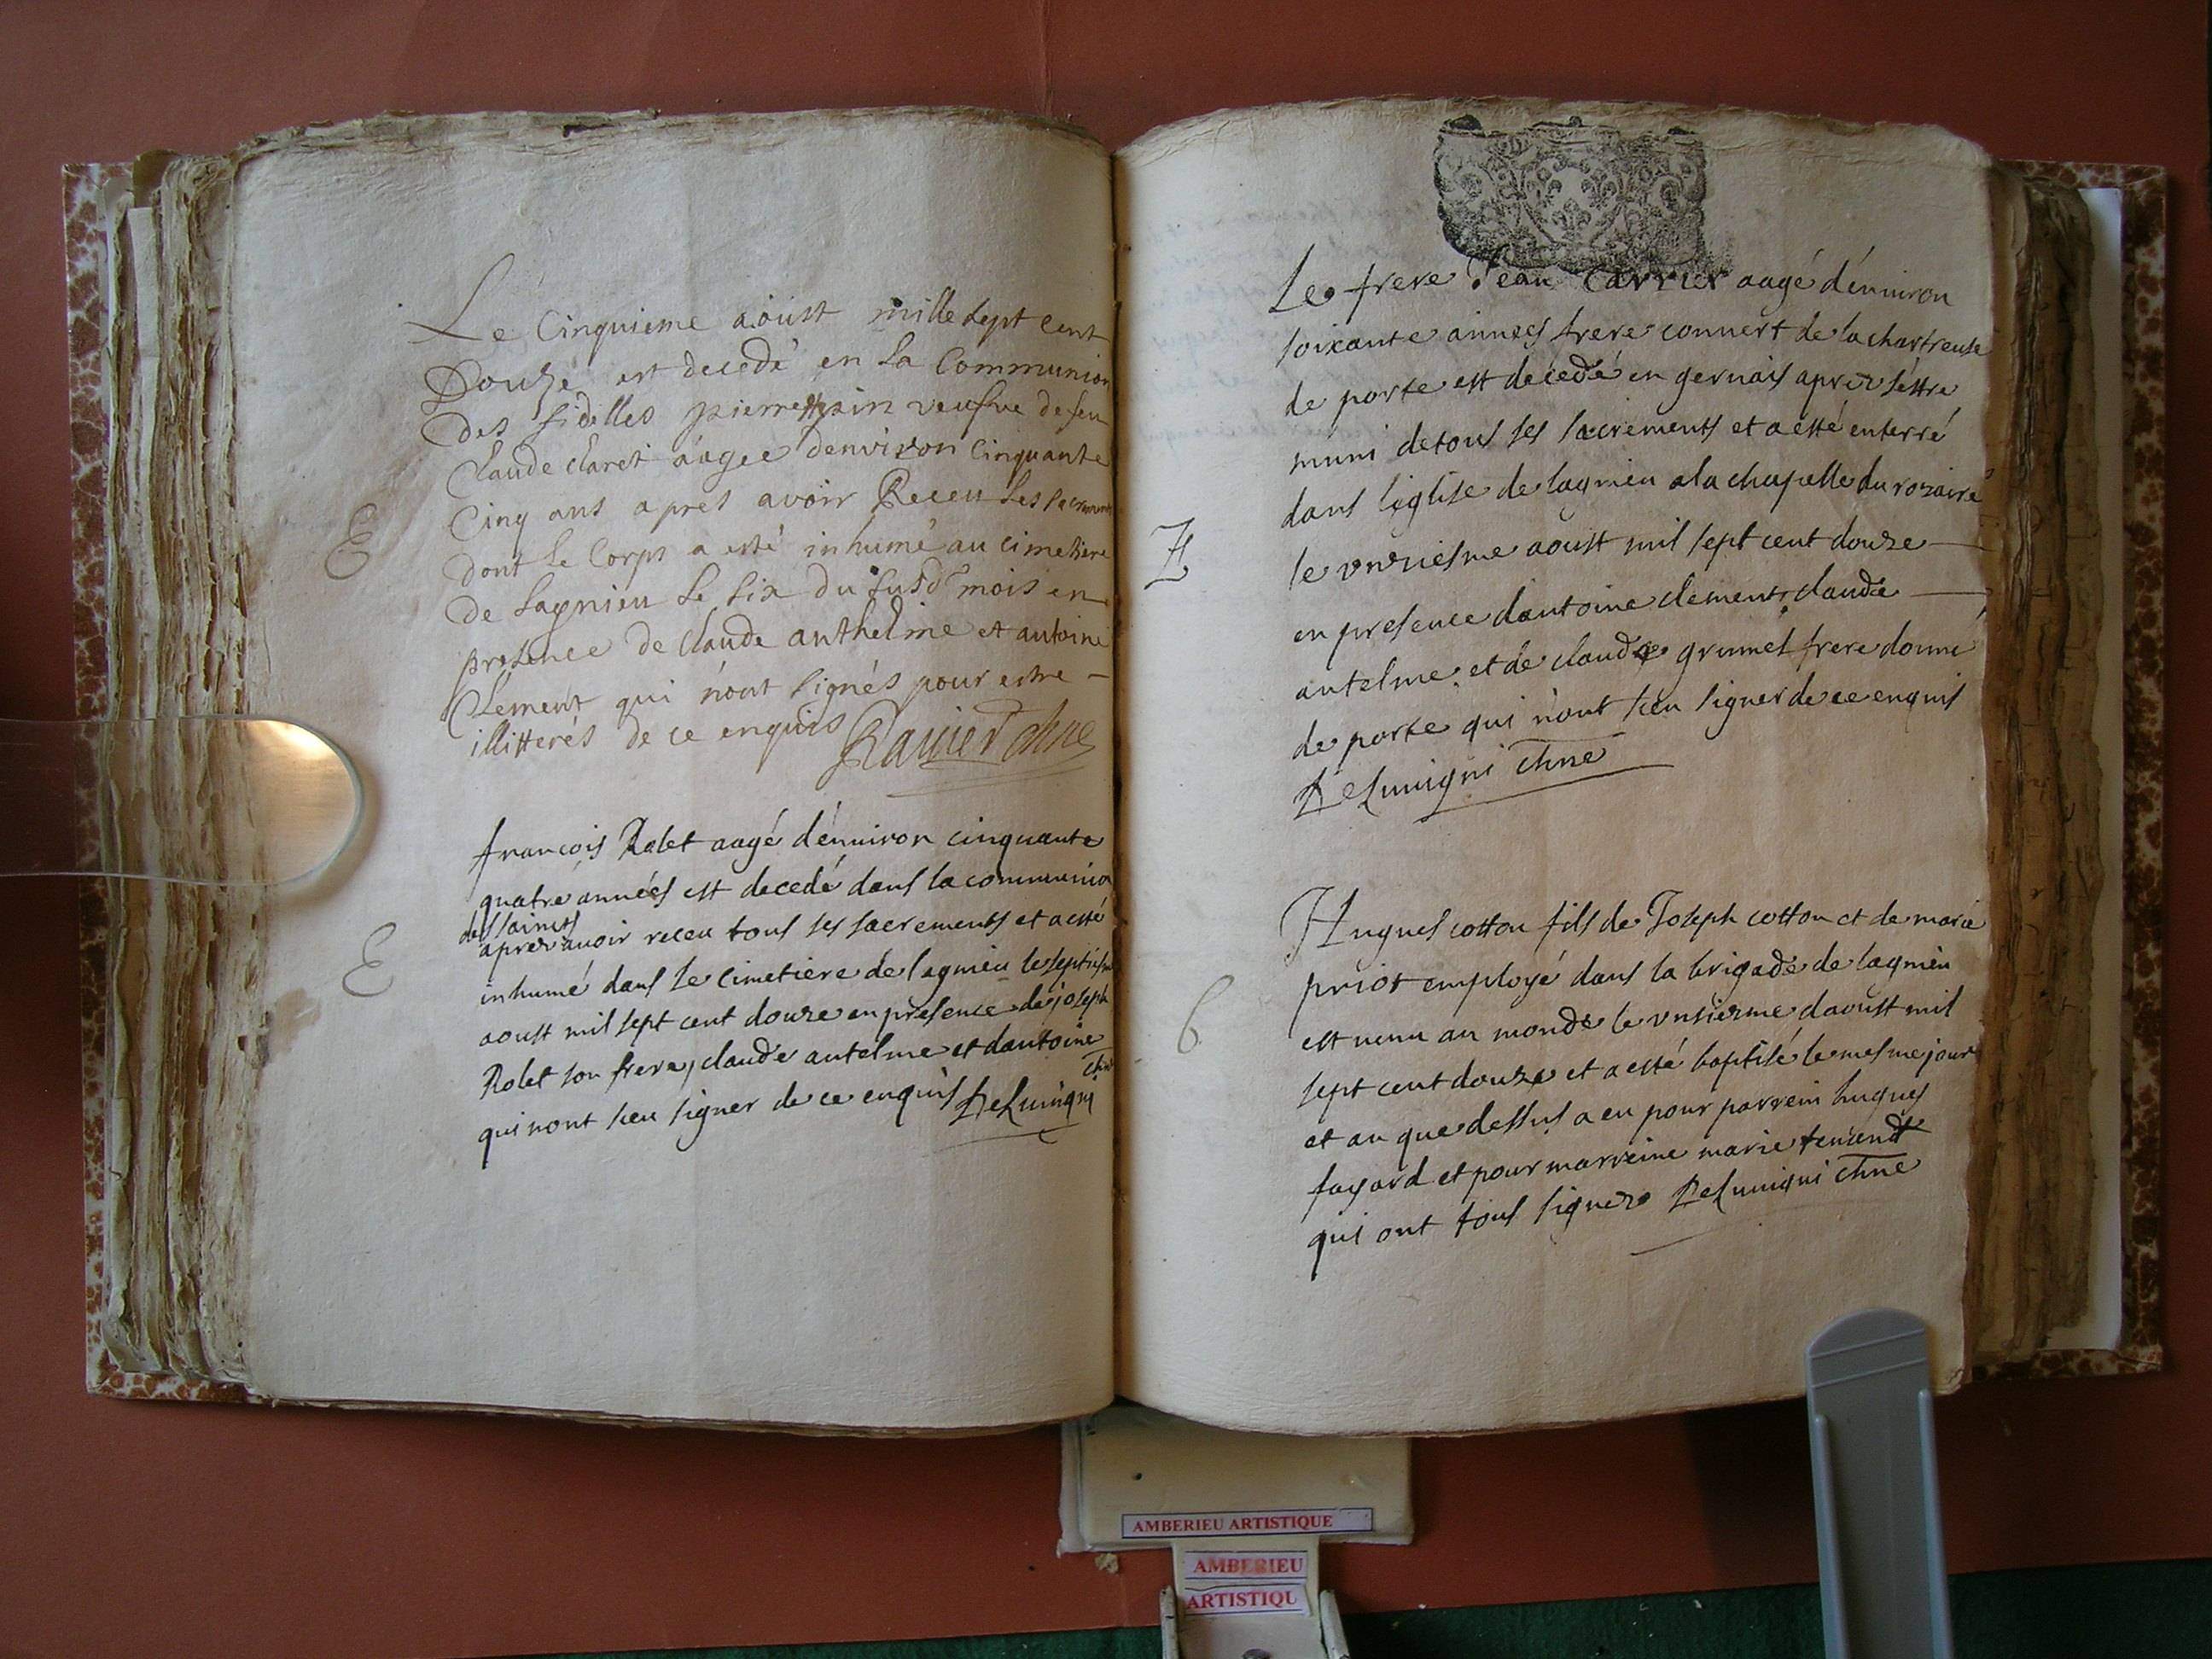 Le Cinquieme aoust mille sept cent
Douze est decedé en la Communion
des fidelles pierrette veufve de feu
Claude Claret aagee denviron Cinquante
Cinq ans apres avoir Receu Les sacrements
dont Le Corps a esté inhumé au Cimetiere
De Lagnieu Le six du susd mois en
presence de Claude anthelme et antoine
Clement qui n'ont signés pour estre
illitterés de ce enquis
E
françois Rolet aagé d'enuiron cinquante
quatre années est decedé dans la communion
des saincts
apres auoir receu tous ses sacrements et a esté
inhumé dans le cimetiere de lagnieu le septiesme
aoust mil sept cent douze en presence de joseph
Rolet son frere, claude antelme et dantoine
qui nont sceu signer de ce enquis DeLuuigni
chne
E
Le frere Jean Carrier aagé d'enuiron
soixante années frere conuert de la chartreuse
de porte est decedé en geruais apres s'estre
muni de tous ses sacrements et a esté enterré
dans l'eglise de lagnieu a la chapelle du rozaire
le vnziesme aoust mil sept cent douze
en presence dantoine clement, claude
antelme et de claude grumet frere donné
de porte qui n'ont sceu signer de ce enquis
DeLuuigni chne
Hugues cotton fils de Joseph cotton et de marie
priot employé dans la brigade de lagnieu
est uenu au monde le vnsiesme daoust mil
sept cent douze et a esté baptisé le mesme jour
et an que dessus a eu pour parrein hugues
fayard et pour marreine marie
qui ont tous signez DeLuuigni chne
6
AMBERIEU ARTISTIQUE
AMBERIEU
ARTISTIQU